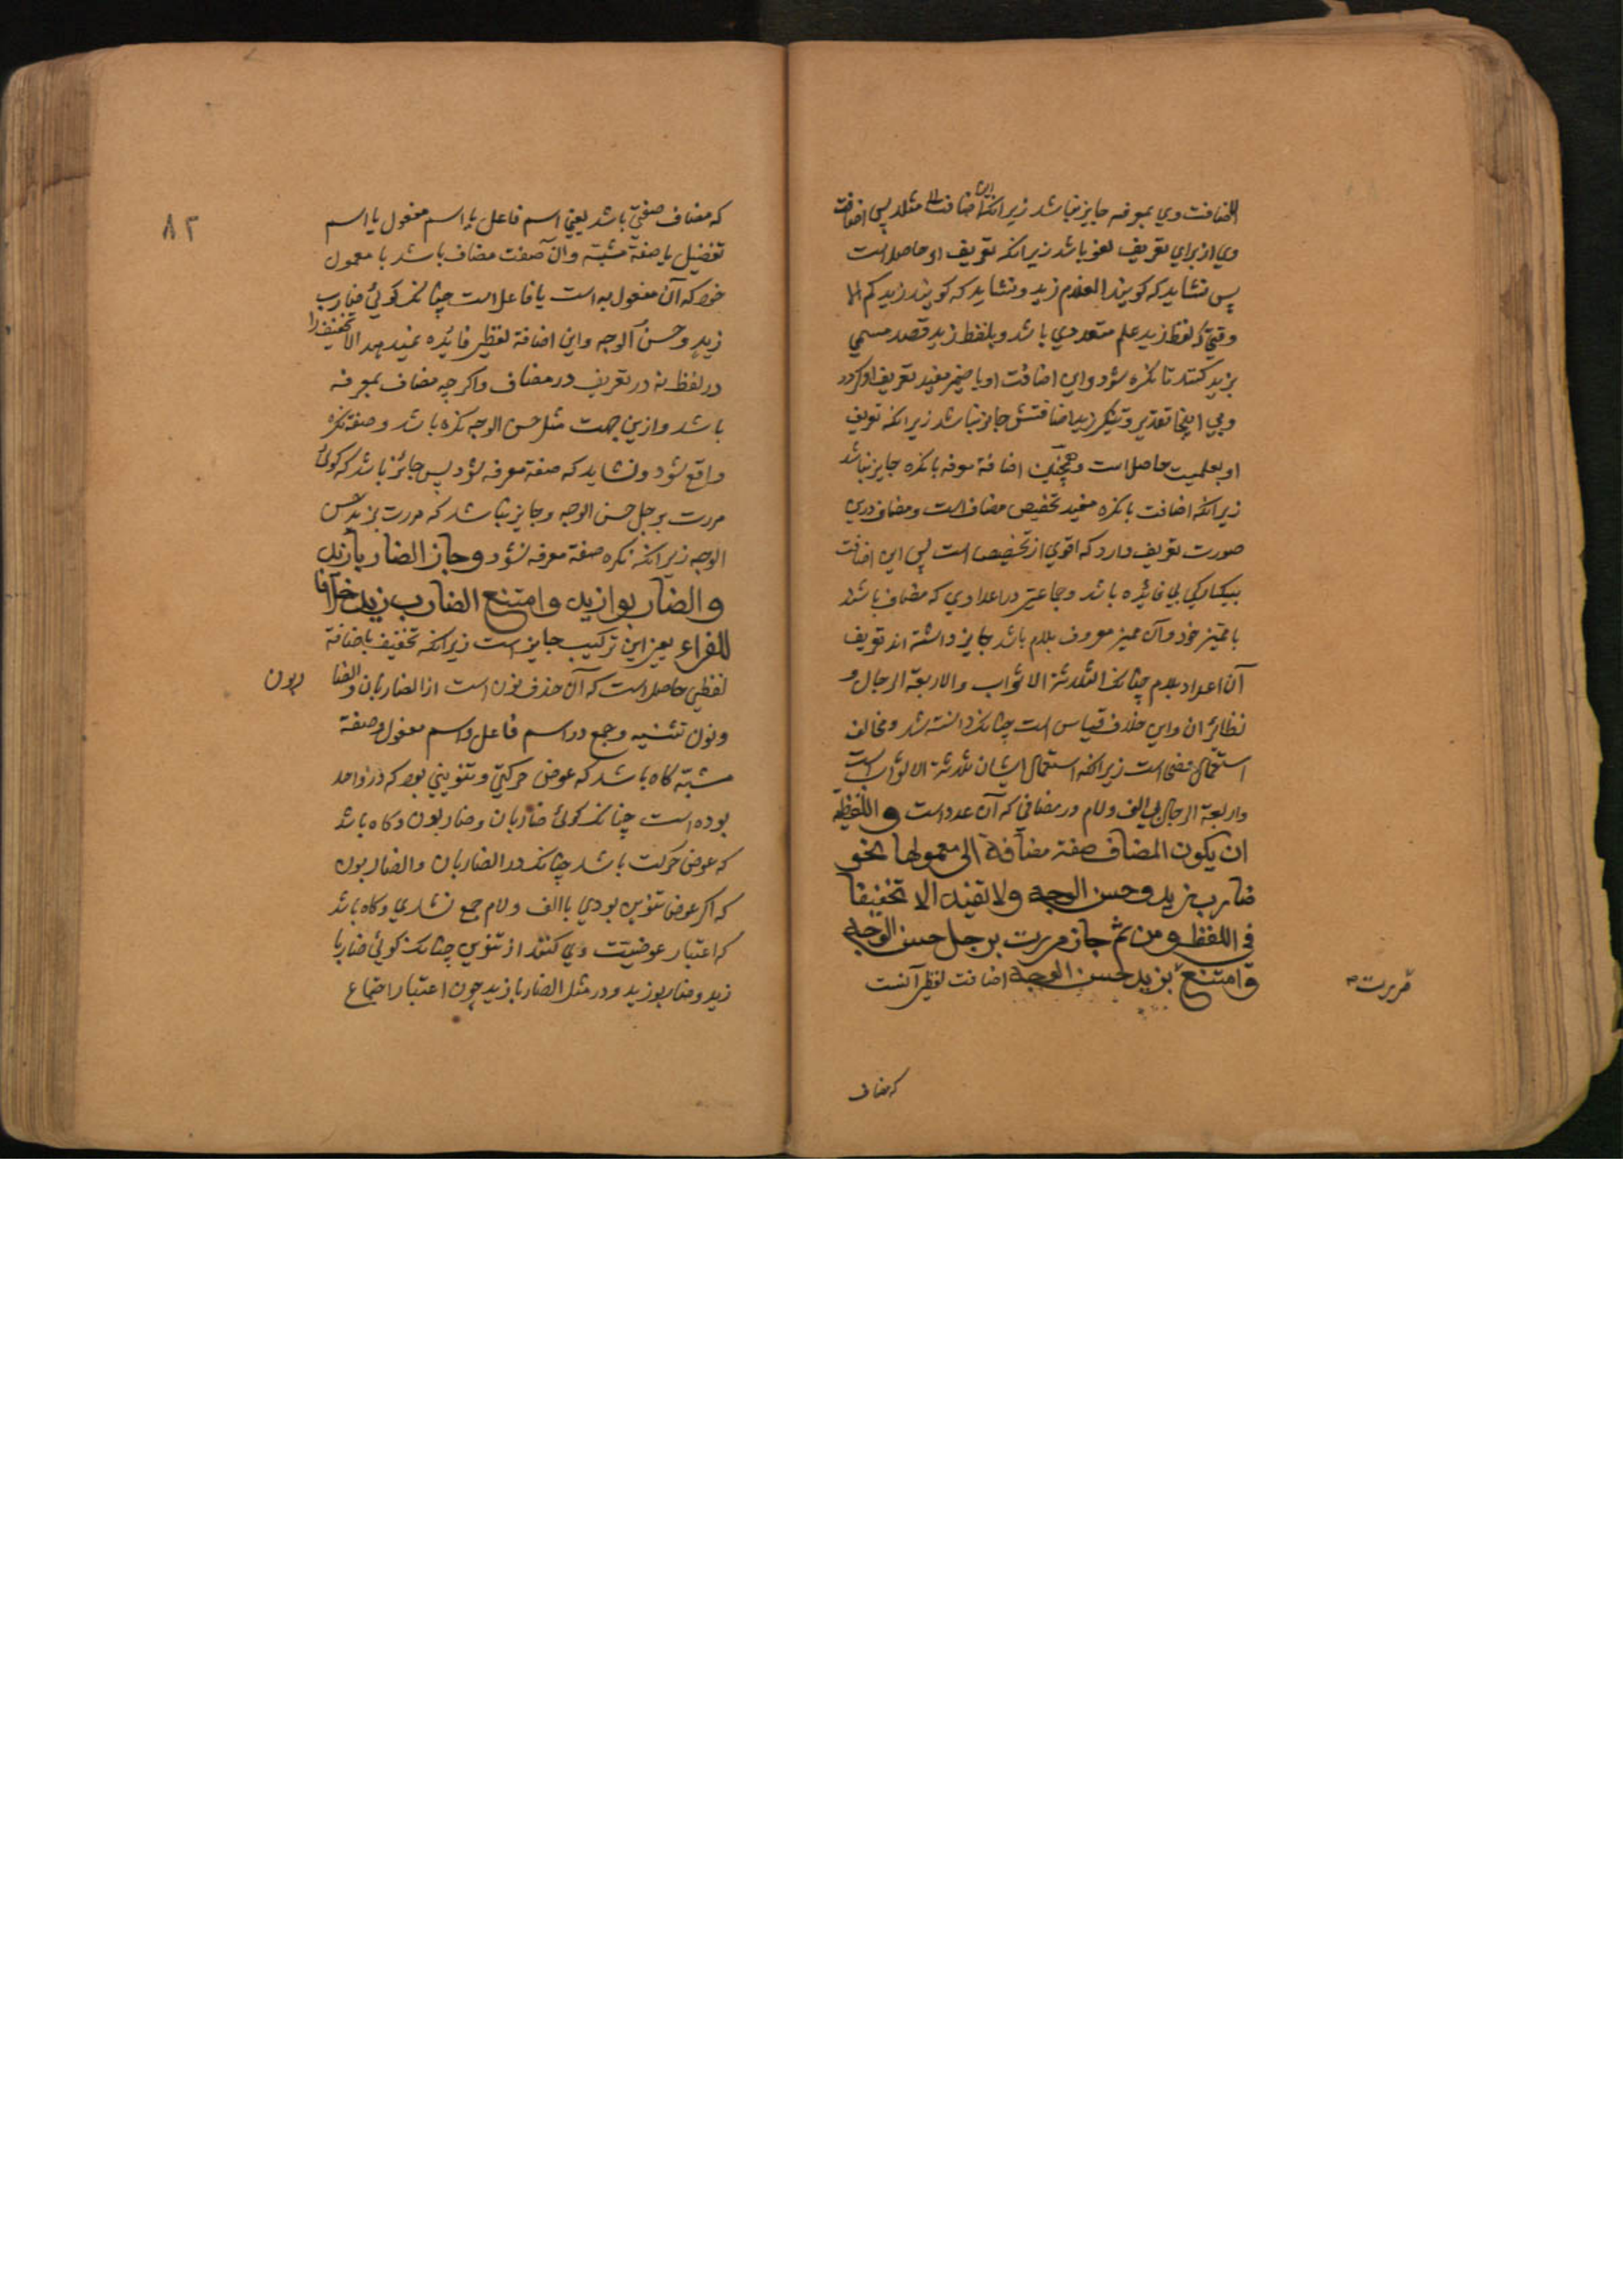 اضافت وي بمعرفه جايز نباشد زيرانكه اين اضافت الا مثلا پس اضافت
وي از براي تعريف لغو باشد زيرانكه تعريف او حاصل است
پس نشايد كه كويند الغلام زيد و نشايد كه كويند زيدكم الا
وقتي كه لفظ زيد علم متعددي باشد و بلفظ زيد قصد مسمي
بزيد كنند تا نكره شود و اين اضافت او با ضمير مفيد تعريف او كردد
و بي اينجا تقدير و تنكير زيد اضافتش جايز نباشد زيرانكه تعريف
او بعلميت حاصل است و همچنين اضافة معرفه با نكره جايز نباشد
زيرانكه اضافت با نكره مفيد تخصيص مضاف است و مضاف درين
صورت تعريف دارد كه اقوي از تخصيص است پس اين اضافت
بيكباركي بي فائده باشد و جماعتي در اعدادي كه مضاف باشد
با مميز خود و آن مميز معروف بلام باشد جايز داشته اند تعريف
آن اعداد بلام چنانكه الثلاثة الاثواب والاربعة الرجال و
نظائر ان و اين خلاف قياس است چنانكه دانسته شد و مخالف
استعمال فصحا است زيرانكه استعمال ايشان ثلاثة الاثواب است
واربعة الرجال بي الف و لام در مضافي كه آن عدد است واللفظية
ان يكون المضاف صفة مضافة الى معمولها نحو
ضارب زيد وحسن الوجه ولا تفيد الا تخفيفا
في اللفظ ومن ثم جاز مررت برجل حسن الوجه
وامتنع بزيد حسن الوجه اضافت لفظي آنست
مررت
كه مضاف
٨٢
كه مضاف صفتي باشد يعني اسم فاعل يا اسم مفعول يا اسم
تفضيل يا صفة مشبة و ان صفت مضاف باشد با معمول
خود كه آن مفعول به است يا فاعل است چنانكه كوئي ضارب
زيد وحسن الوجه و اين اضافة لفظي فايده نميدهد الا تخفيف را
در لفظ نه در تعريف در مضاف واكرچه مضاف بمعرفه
باشد و ازين جهت مثل حسن الوجه نكره باشد و صفة نكره
واقع شود و نشايد كه صفة معرفه شود پس جائز باشد كه كوئي
مررت برجل حسن الوجه و جايز نباشد كه مررت بزيد حسن
الوجه زيرانكه نكره صفة معرفه نشود وجاز الضاربا زيد
والضاربوا زيد وامتنع الضارب زيد خلافا
للفراء يعني اين تركيب جايز است زيرانكه تخفيف باضافة
لفظي حاصل است كه آن حذف نون است از الضاربان والضا
ربون
و نون تثنيه و جمع در اسم فاعل و اسم مفعول و صفة
مشبة كاه باشد كه عوض حركتي و تنويني بود كه در واحد
بوده است چنانكه كوئي ضاربان و ضاربون و كاه باشد
كه عوض حركت باشد چنانكه در الضاربان والضاربون
كه اكر عوض تنوين بودي با الف و لام جمع نشدي و كاه باشد
كه اعتبار عوضيت وي كنند از تنوين چنانكه كوئي ضاربا
زيد و ضاربو زيد و در مثل الضاربا زيد چون اعتبار اجتماع